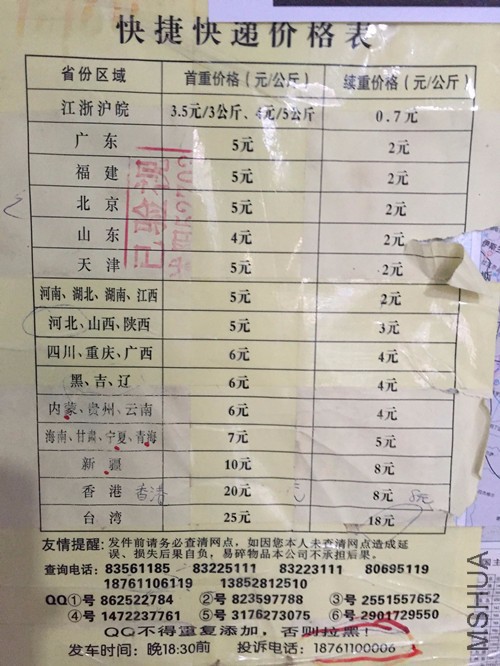 快捷快递价格表
省份区域 首重价格（元/公斤） 续重价格（元/公斤）
江浙沪皖 3.5元/3公斤、4元/5公斤 0.7元
广东 5元 2元
福建 5元 2元
北京 5元 2元
山东 4元 2元
天津 5元 2元
河南、湖北、湖南、江西 5元 2元
河北、山西、陕西 5元 3元
四川、重庆、广西 6元 4元
黑、吉、辽 6元 4元
内蒙、贵州、云南 6元 4元
海南、甘肃、宁夏、青海 7元 5元
新疆 10元 8元
香港 香港 20元 元 8元 8元
台湾 25元 18元
已验视
友情提醒：发件前请务必查清网点，如因您本人未查清网点造成延
误、损失后果自负，易碎物品本公司不承担后果。
查询电话：83561185 83225111 83223111 80695119
18761106119 13852812510
QQ①号 862522784 ②号 823597788 ③号 2551557652
④号 1472237761 ⑤号 3176273075 ⑥号 2901729550
QQ不得重复添加，否则拉黑！
发车时间：晚18:30前 投诉电话：18761100006
MSHUA